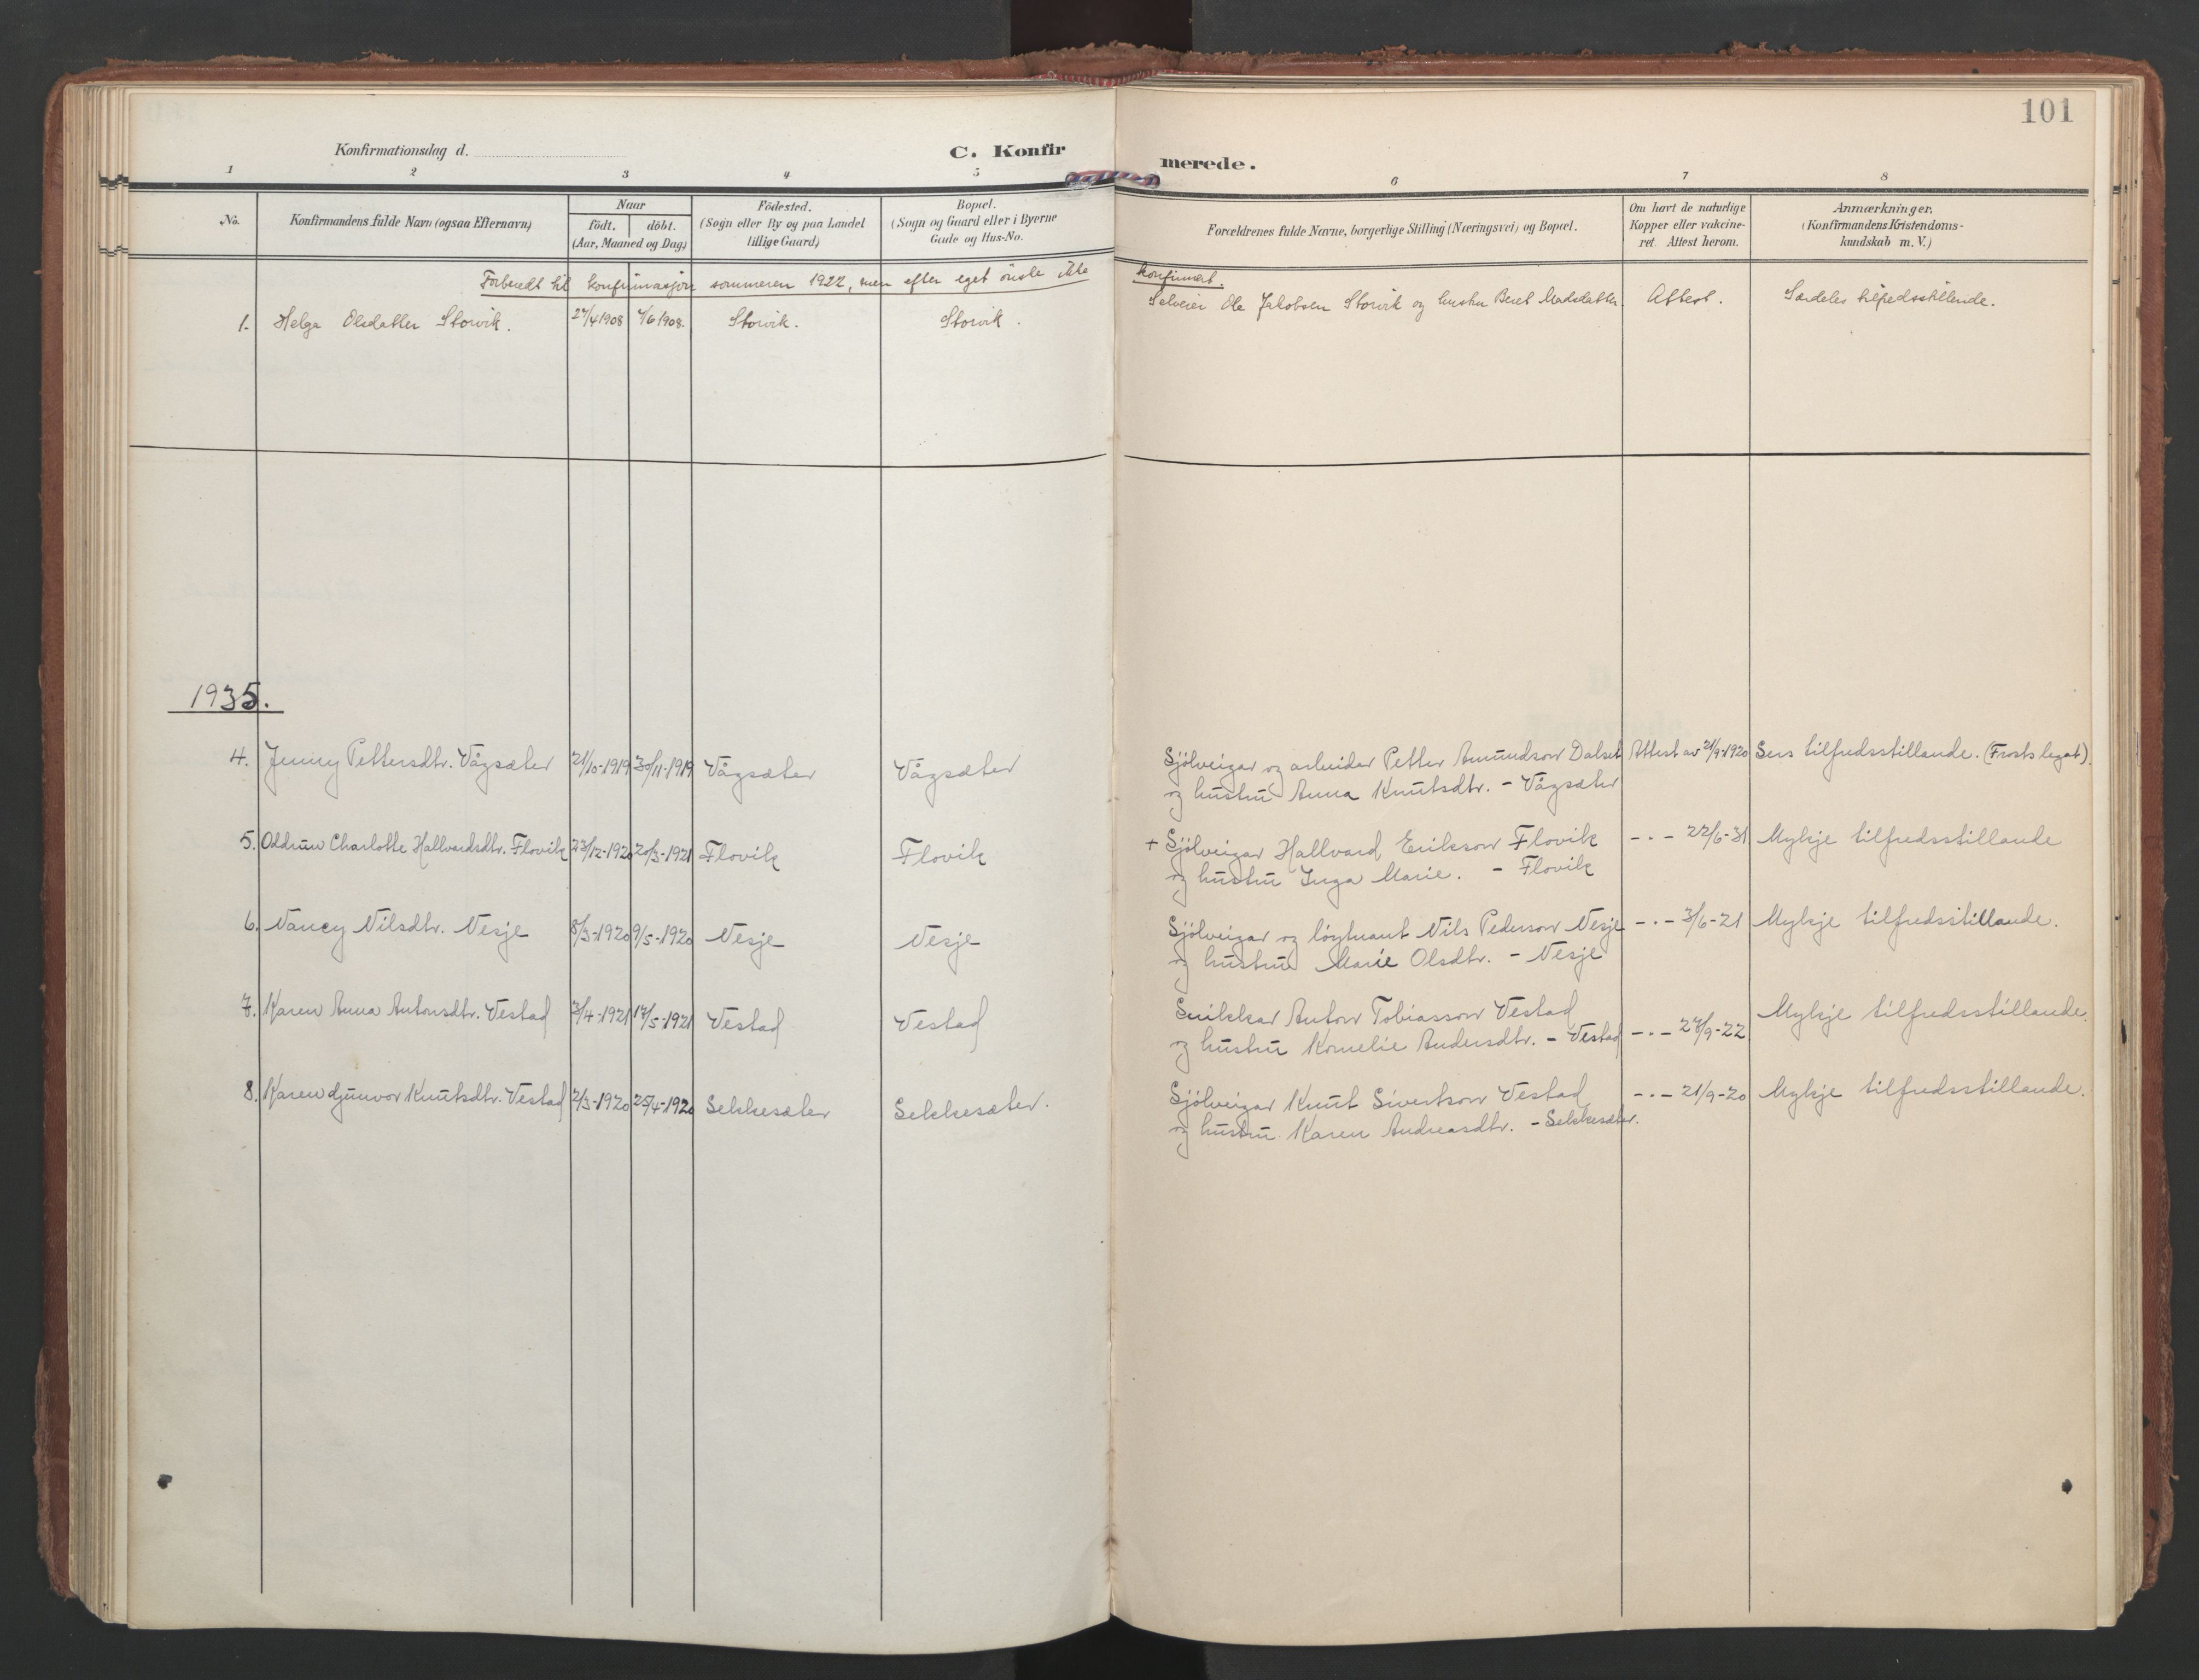 101
Konfirmationsdag d.
C. Konfirmerede.
1 2 3 4 5 6 7 8
No. Konfirmandens fulde Navn (ogsaa Efternavn) Naar Födested. Bopæl. Forældrenes fulde Navne, borgerlige Stilling (Næringsvei) og Bopæl. Om havt de naturlige Anmærkninger.
födt. döbt. (Sogn eller By og paa Landet (Sogn og Gaard eller i Byerne Kopper eller vakcine- (Konfirmandens Kristendoms-
(Aar, Maaned og Dag) tillige Gaard) Gade og Hus-No. ret. Attest herom. kundskab m. V.)
Forberedt til konfirmasjon sommeren 1922, men efter eget önske ikke konfirmert.
1. Helga Olsdatter Storvik. 27/4 1908 7/6 1908. Storvik. Storvik. Selveier Ole Jakobsen Storvik og hustru Beret Madsdatter. Attest. Særdeles tilfredsstillende.
1935.
4. Jenny Pettersdtr. Vågsæter 21/10-1919 30/11-1919 Vågsæter Vågsæter Sjölveigar og arbeidar Petter Amundson Dalset Attest av 21/9-1920 Sers tilfredsstillande. (Frosts legat).
og hustru Anna Knutsdtr. - Vågsæter
5. Oldrun Charlotte Hallvardsdtr. Flovik 23/12-1920 20/3-1921 Flovik Flovik + Sjölveigar Hallvard Erikson Flovik -"- 22/6-31 Mykje tilfredsstillande
og hustru Inga Marie. - Flovik
6. Nancy Nilsdtr. Nesje 8/3-1920 9/5-1920 Nesje Nesje Sjölveigar og löytnant Nils Pederson Nesje -"- 3/6-21 Mykje tilfredsstillande.
og hustru Marie Olsdtr. - Nesje
7. Karen Anna Antonsdtr. Vestad 3/4-1921 17/5-1921 Vestad Vestad Snikkar Anton Tobiasson Vestad Mykje tilfredsstillande.
og hustru Kornelie Andersdtr. - Vestad -"- 27/9-22
8. Karen Gunvor Knutsdtr. Vestad 2/3-1920 25/4-1920 Sekkesæter Sekkesæter. Sjölveigar Knut Sivertson Vestad -"- 21/9-20 Mykje tilfredsstillande.
og hustru Karen Andreasdtr. - Sekkesæter.